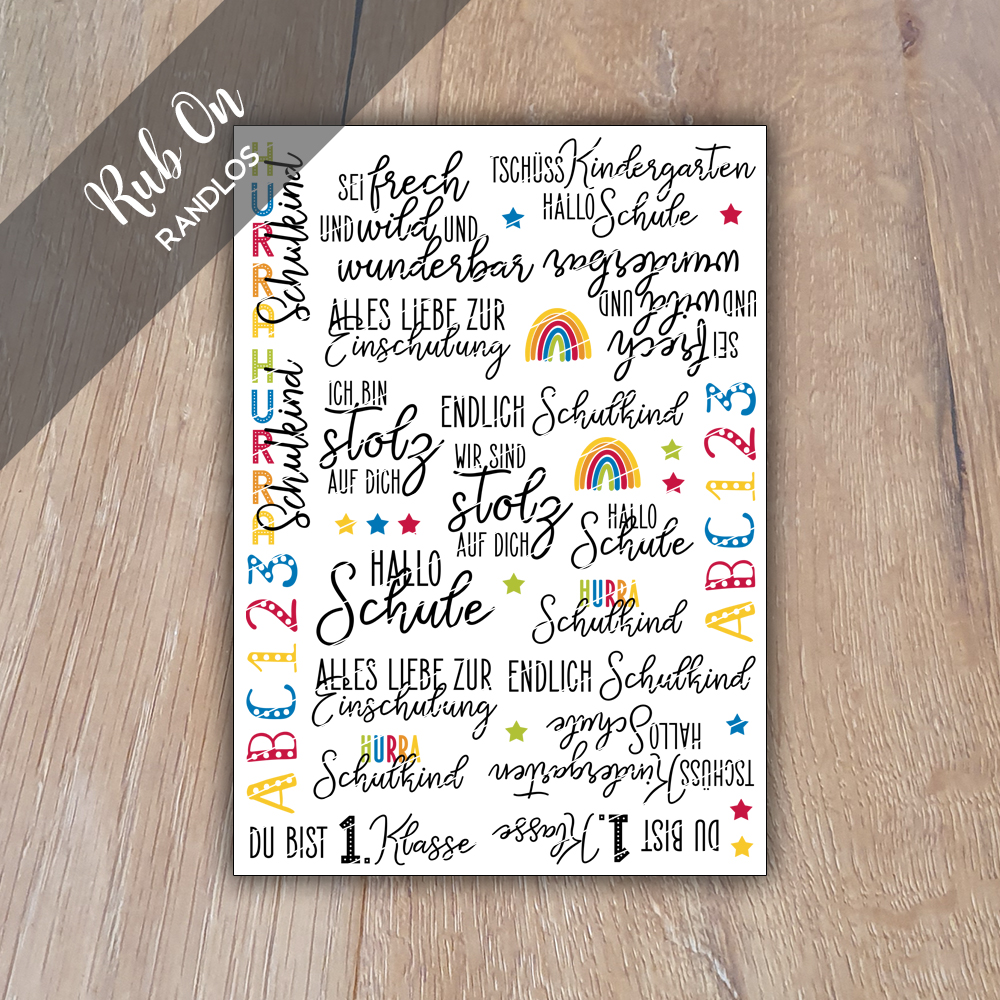 Rub On
RANDLOS
HURRA HURRA
Schulkind Schulkind
ABC123
SEI frech
UND wild UND
wunderbar
TSCHÜSS Kindergarten
HALLO Schule
SEI frech
UND wild UND
wunderbar
ALLES LIEBE ZUR
Einschulung
ICH BIN
stolz
AUF DICH
ENDLICH Schulkind
WIR SIND
stolz
AUF DICH
HALLO
Schule
ABC123
HALLO
Schule
HURRA
Schulkind
ALLES LIEBE ZUR
Einschulung
ENDLICH Schulkind
TSCHÜSS Kindergarten
HALLO Schule
HURRA
Schulkind
DU BIST 1. Klasse
DU BIST 1. Klasse